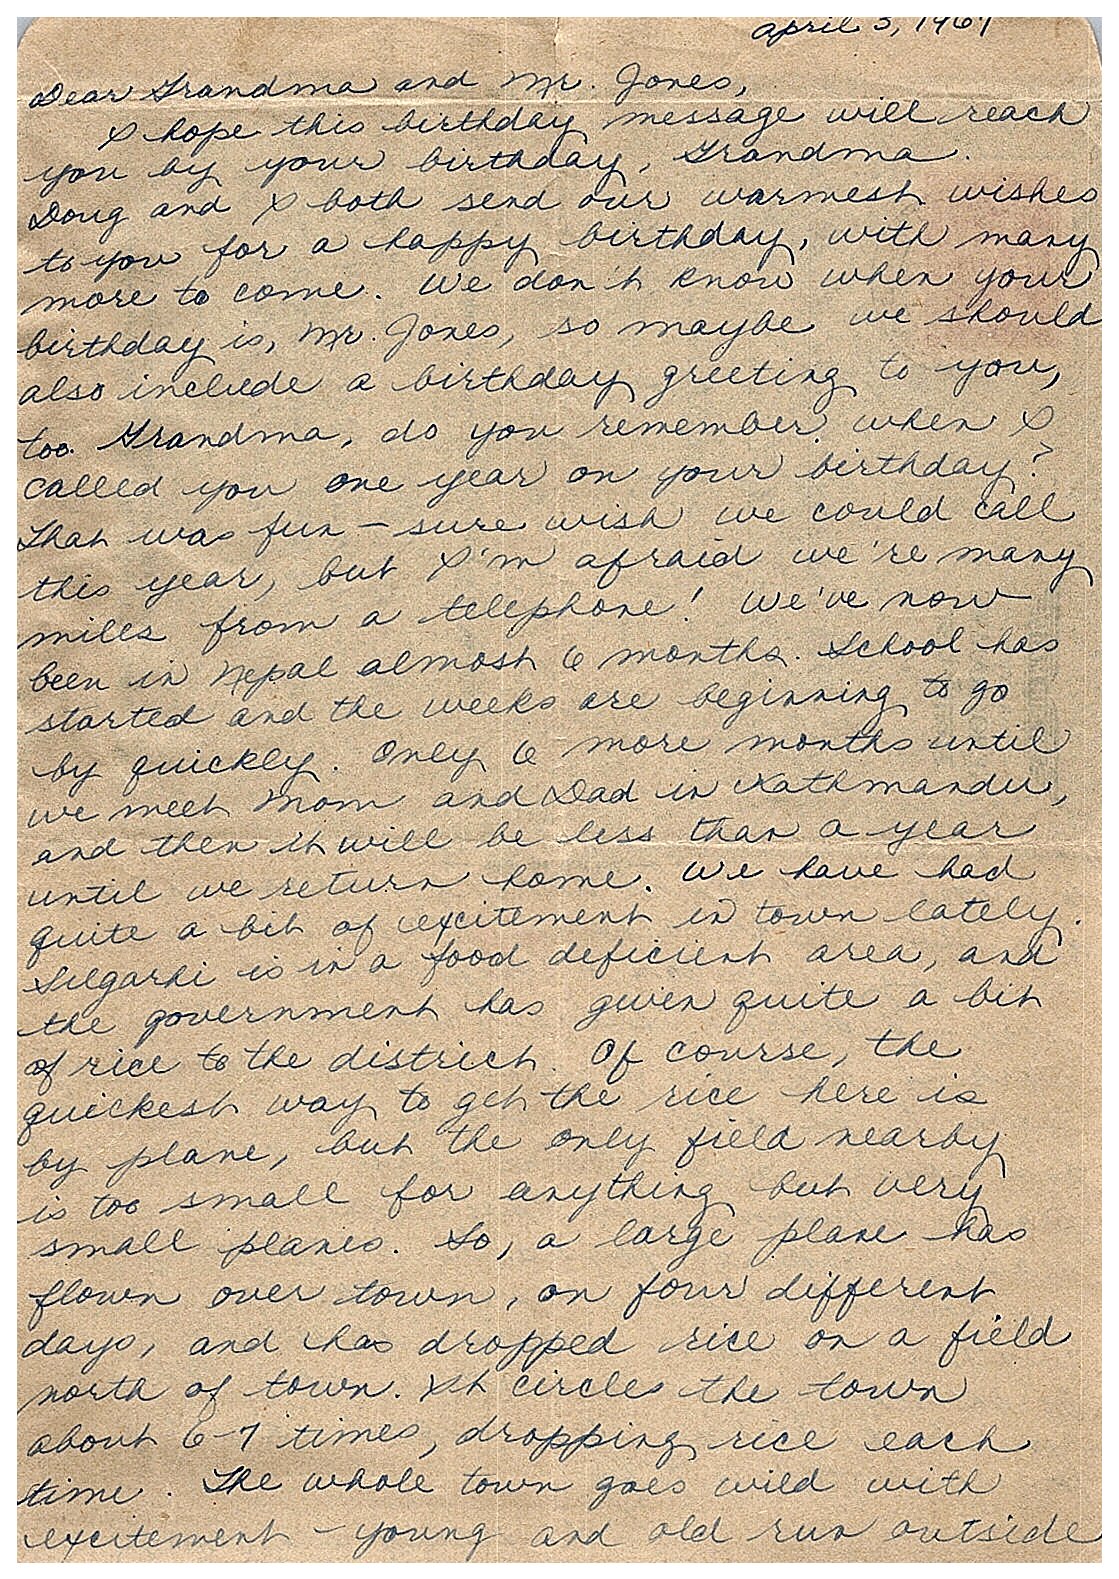 april 3, 1967
Dear Grandma and Mr. Jones,
I hope this birthday message will reach
you by your birthday, Grandma.
Doug and I both send our warmest wishes
to you for a happy birthday, with many
more to come. We don't know when your
birthday is, Mr. Jones, so maybe we should
also include a birthday greeting to you,
too. Grandma, do you remember when I
called you one year on your birthday?
That was fun – sure wish we could call
this year, but I'm afraid we're many
miles from a telephone! We've now
been in Nepal almost 6 months. School has
started and the weeks are beginning to go
by quickly. Only 6 more months until
we meet Mom and Dad in Kathmandu,
and then it will be less than a year
until we return home. We have had
quite a bit of excitement in town lately.
Silgarhi is in a food deficient area, and
the government has given quite a bit
of rice to the district. Of course, the
quickest way to get the rice here is
by plane, but the only field nearby
is too small for anything but very
small planes. So, a large plane has
flown over town, on four different
days, and has dropped rice on a field
north of town. It circles the town
about 6-7 times, dropping rice each
time. The whole town goes wild with
excitement – young and old run outside